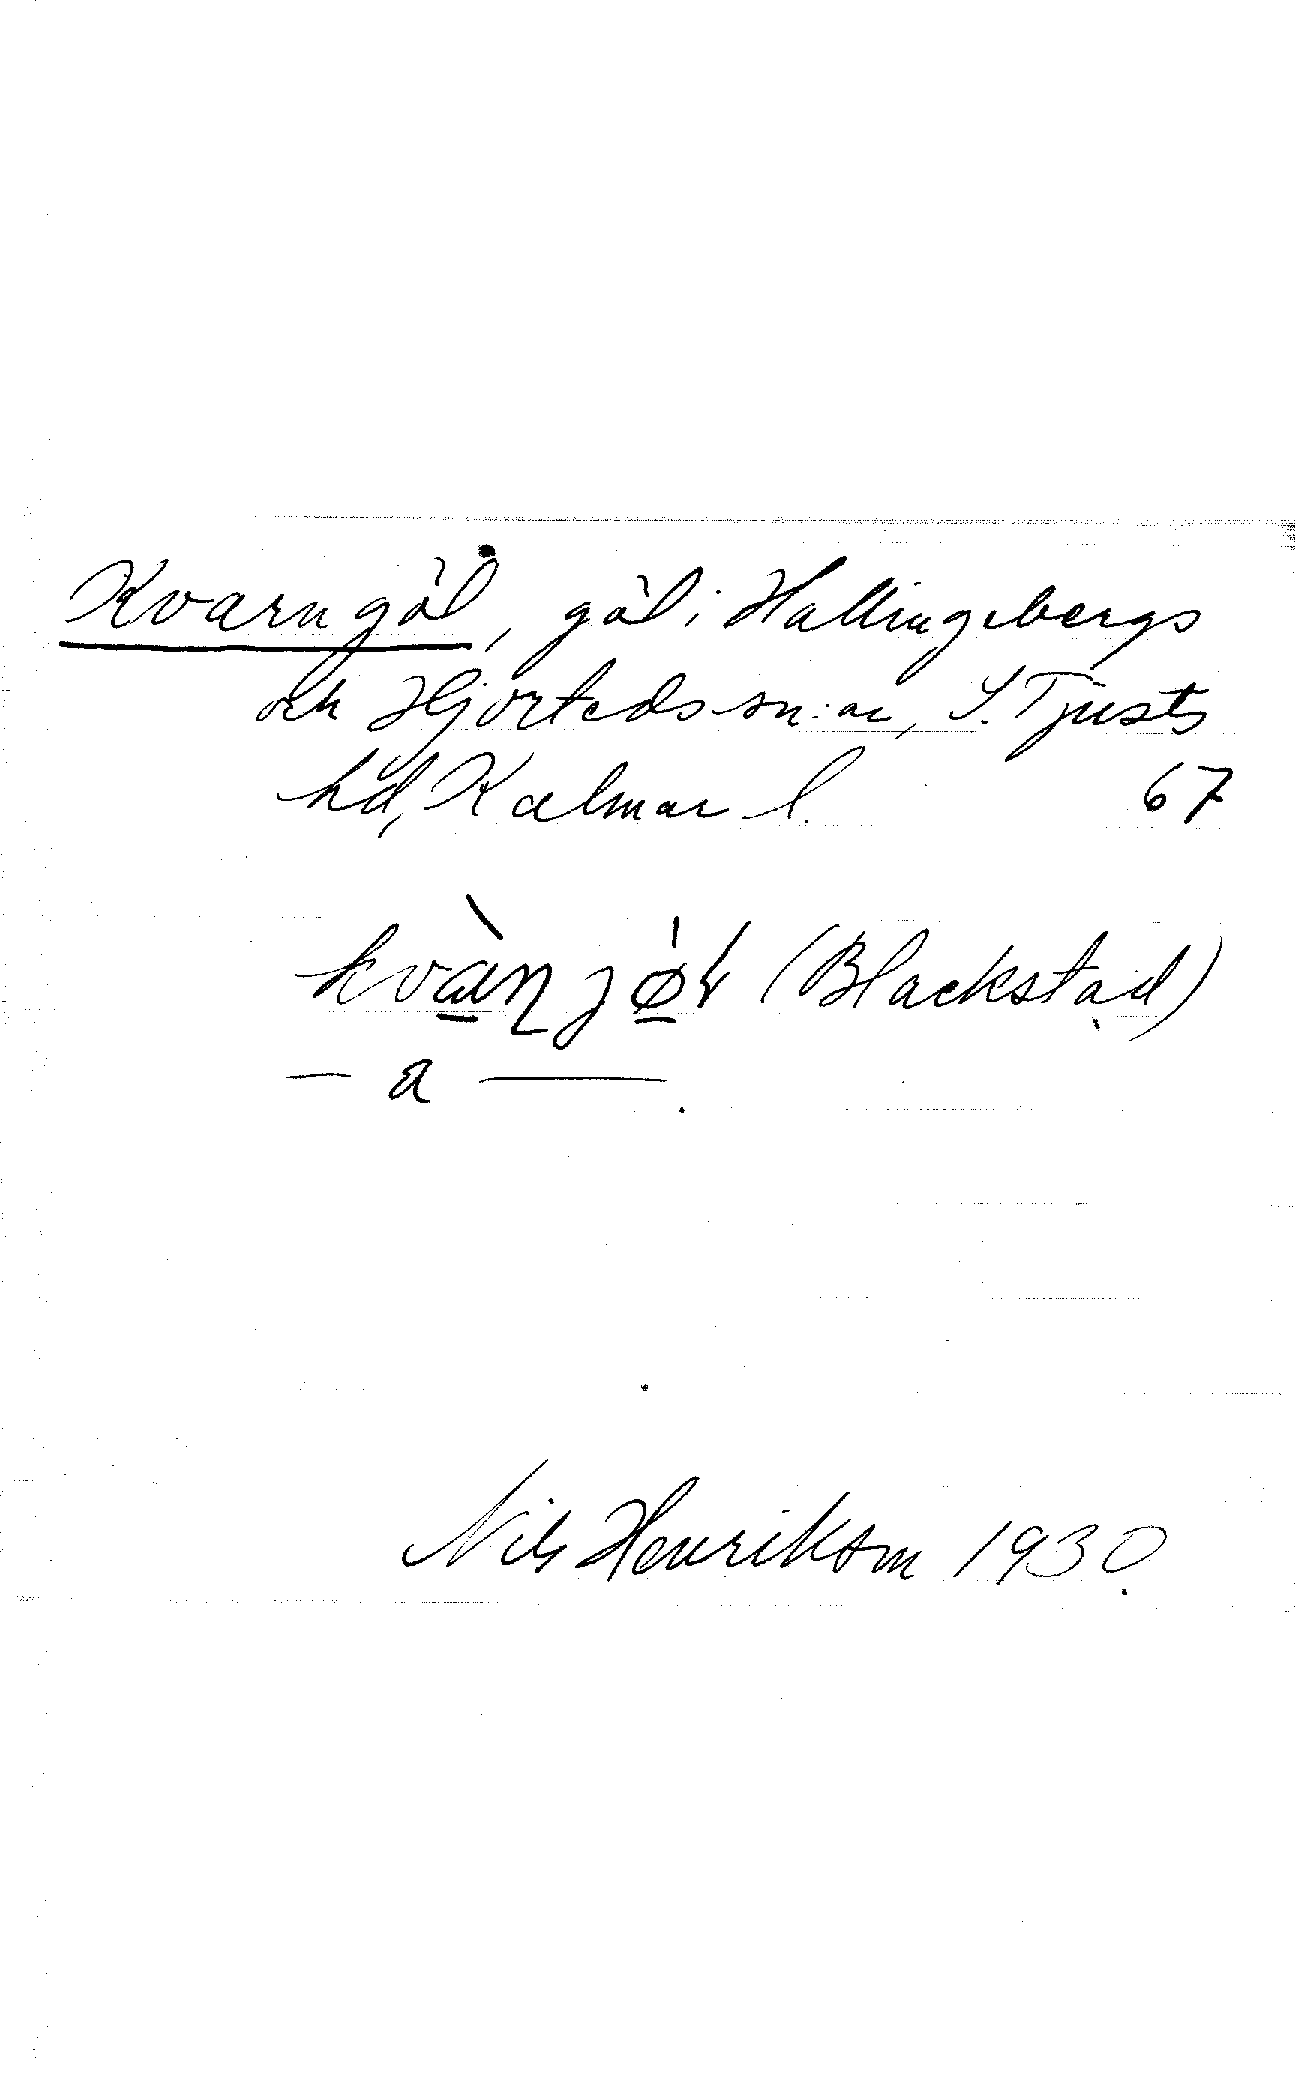 Kvarngöl, göl i Hallingebergs
och Hjorteds sn:ar, S. Tjusts
hd, Kalmar l. 67
(Blackstad)
— a —
Nils Henrikson 1930